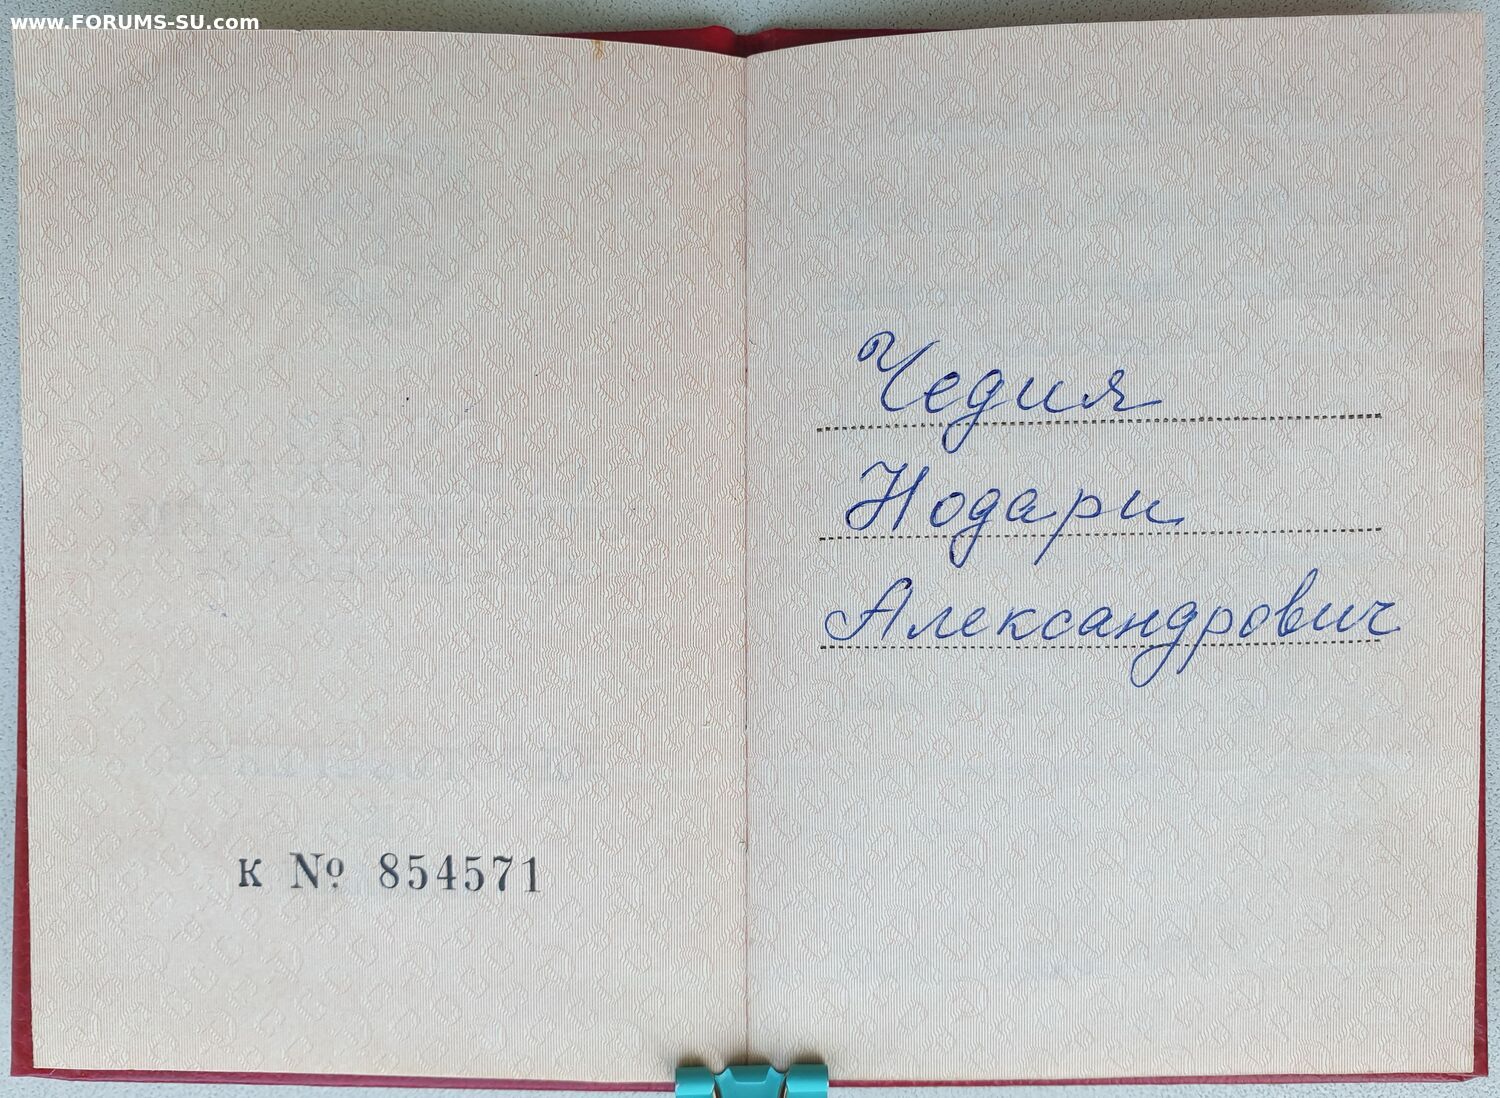 www.FORUMS-SU.com
К № 854571
Чедия
Нодари
Александрович